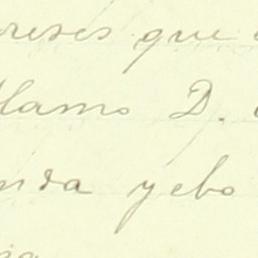 reses que
llamo D.
nda yebo